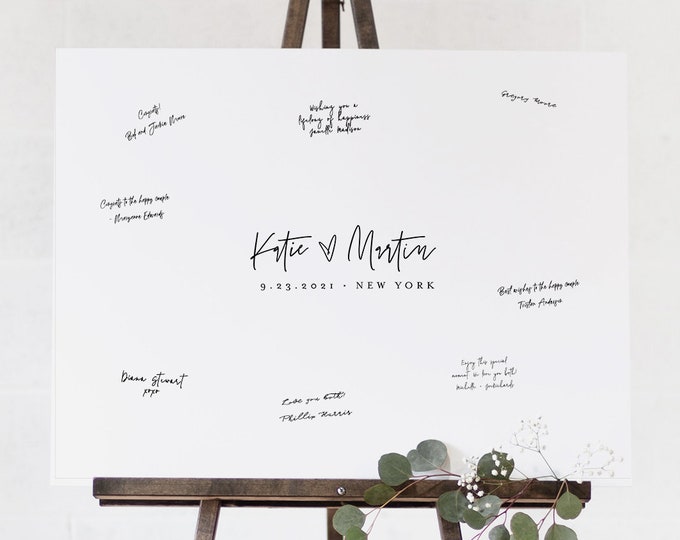 Congrats!
Bob and Jackie Moore
Wishing you a
lifelong of happiness
Janelle Madison
Gregory Moore
Congrats to the happy couple
- Maryanne Edwards
Katie ♡ Martin
9.23.2021 · NEW YORK
Best wishes to the happy couple
Tristan Anderson
Diana Stewart
xoxo
Love you both!
Phillip Harris
Enjoy this special
moment. We love you both!
Michelle +